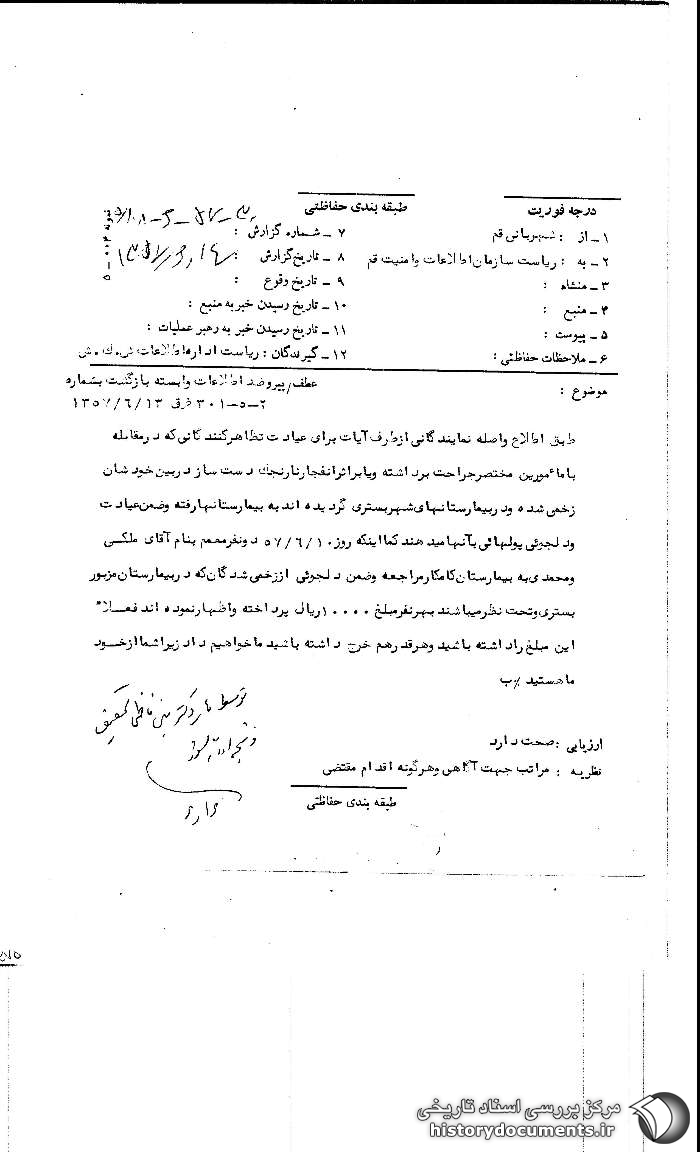 درجه فوریت
طبقه بندی حفاظتی
۱ ـ از : شهربانی قم
۷ ـ شماره گزارش :
۲ ـ به : ریاست سازمان اطلاعات و امنیت قم
۸ ـ تاریخ گزارش :
۳ ـ منشاء :
۹ ـ تاریخ وقوع :
۴ ـ منبع :
۱۰ ـ تاریخ رسیدن خبر به منبع :
۵ ـ پیوست :
۱۱ ـ تاریخ رسیدن خبر به رهبر عملیات :
۶ ـ ملاحظات حفاظتی :
۱۲ ـ گیرندگان : ریاست اداره اطلاعات ش.ک.ش
موضوع :
عطف/پیرو ضد اطلاعات وابسته بازگشت بشماره
۲ــ۵ــ۳۰۱ فرق ۱۳۵۷/۶/۱۳
طبق اطلاع واصله نمایندگانی ازطرف آیات برای عیادت تظاهرکنندگانی که درمقابله
با مأمورین مختصرجراحت برداشته ویا براثر انفجار نارنجک دست ساز دربین خودشان
زخمی شده ودربیمارستانهای شهربستری گردیده اند به بیمارستانها رفته وضمن عیادت
ودلجوئی پولهائی بآنها میدهند کما اینکه روز ۵۷/۶/۱۰ دونفرمعمم بنام آقای ملکی
ومحمدی به بیمارستان کامکار مراجعه وضمن دلجوئی اززخمی شدگان که دربیمارستان مزبور
بستری وتحت نظرمیباشند بهرنفرمبلغ ۱۰۰۰۰ریال پرداخته واظهارنموده اند فعلا"
این مبلغ راداشته باشید وهرقدرهم خرج داشته باشید ماخواهیم داد زیرا شما ازخود
ما هستید ٪ ب
ارزیابی : صحت دارد
نظریه : مراتب جهت آگاهی وهرگونه اقدام مقتضی
طبقه بندی حفاظتی
مرکز بررسی اسناد تاریخی
historydocuments.ir